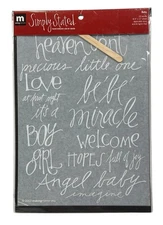 m
Simply Stated
heaven sent
precious little one
Love
bébé
at first sight
it's a
miracle
BOY
welcome
GIRL
HOPES
full of joy
Angel baby
imagine